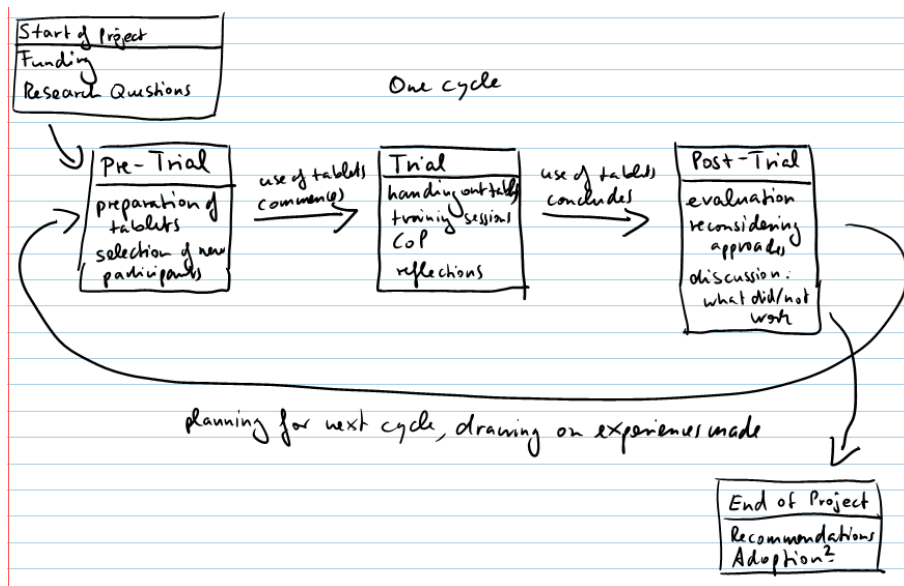 Start of Project
Funding
Research Questions
One cycle
Pre-Trial
preparation of
tablets
selection of new
participants
use of tablets
commences
Trial
handing out tablets
training sessions
CoP
reflections
use of tablets
concludes
Post-Trial
evaluation
reconsidering
approaches
discussion:
what did/not
work
planning for next cycle, drawing on experiences made
End of Project
Recommendations
Adoption?